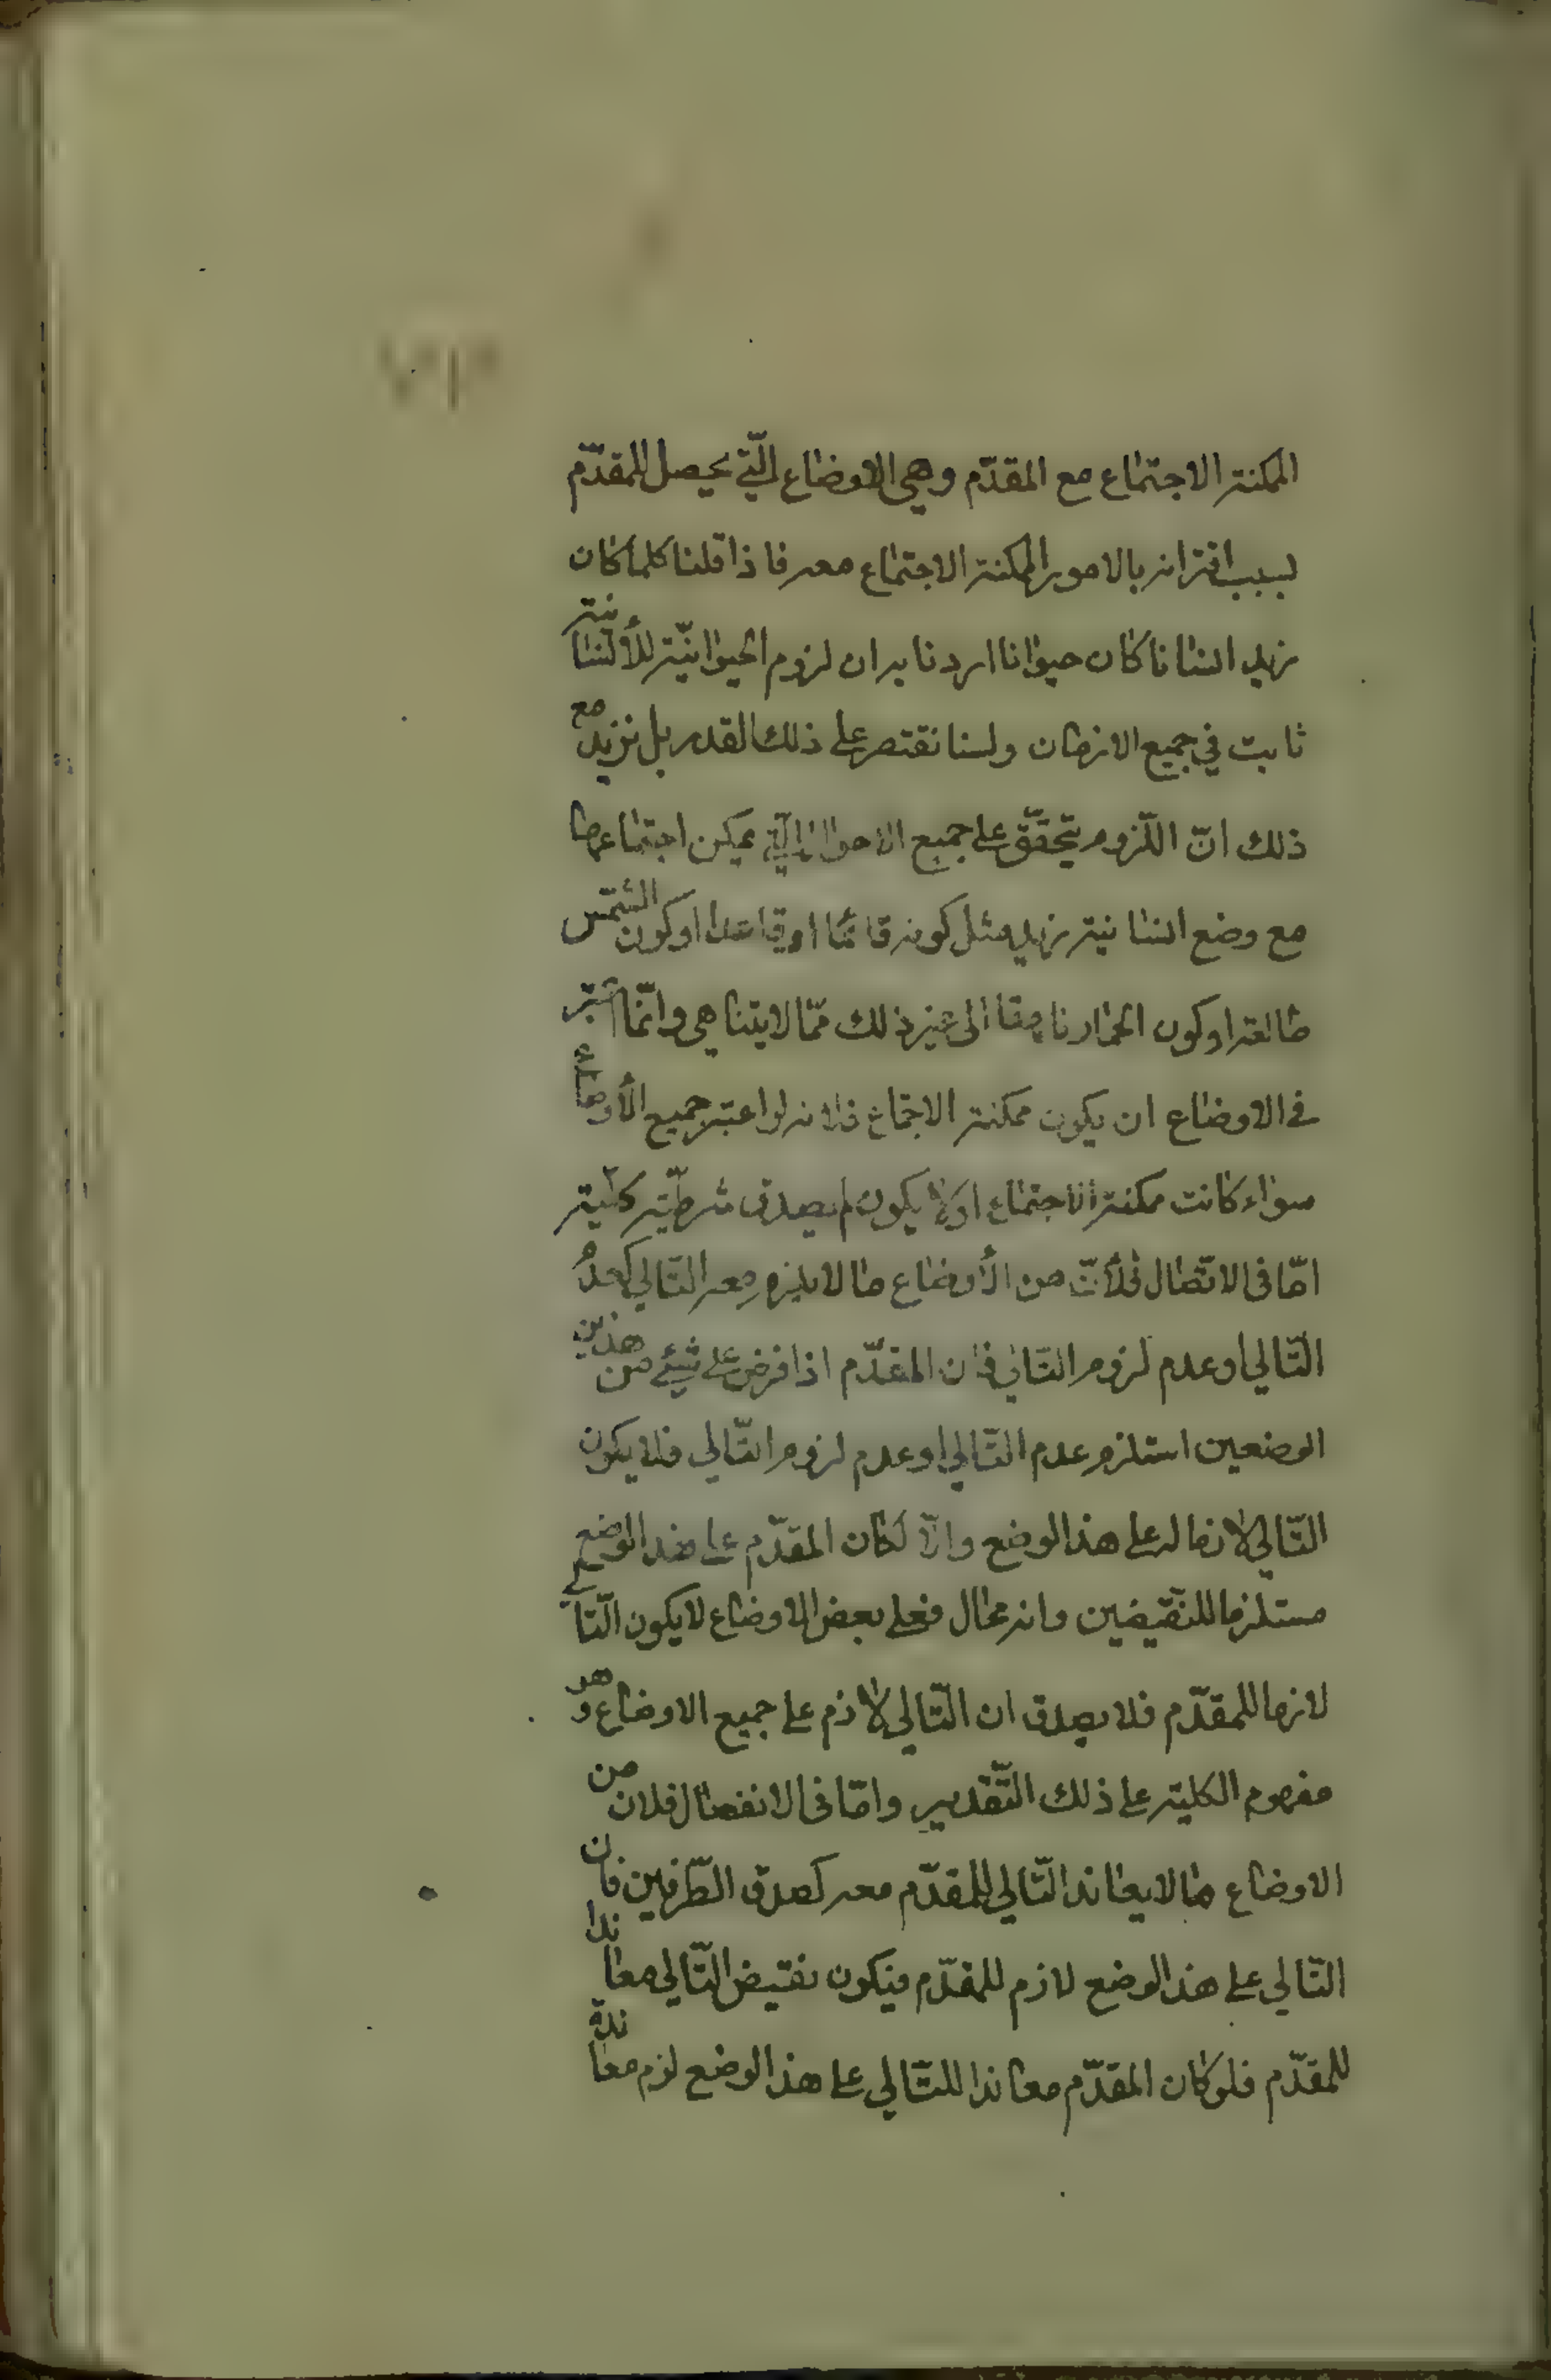 الممكنة الاجتماع مع المقدّم وهي الاوضاع الّتي يحصل للمقدّم
بسبب اقترانه بالامور الممكنة الاجتماع معه فاذا قلنا كلما كان
زيد انسانا كان حيوانا اردنا به ان لزوم الحيوانيّة للأنسانية
ثابت في جميع الازمان ولسنا نقتصر على ذلك القدر بل نزيد مع
ذلك انّ اللّزوم يتحقّق على جميع الاحوال الّتي يمكن اجتماعها
مع وضع انسانية زيد مثل كونه قائما او قاعدا او كون الشّمس
طالعة او كون الحمار ناهقا الى غير ذلك ممّا لا يتناهى وانّما اعتبر
في الاوضاع ان يكون ممكنة الاجتماع فلانه لو اعتبر جميع الأوضاع
سواء كانت ممكنة الاجتماع او لا يكون لم يصدق شرطيّة كليّة
امّا فى الاتّصال فلأنّ من الأوضاع ما لا يلزم معه التّالي كعدم
التّالي او عدم لزوم التّالي فان المقدّم اذا فرض على شيئ من هذين
الوضعين استلزم عدم التّالي او عدم لزوم التّالي فلا يكون
التّالي لازما له على هذا الوضع والّا لكان المقدّم على هذا الوضع
مستلزما للنّقيضين وانه محال فعلى بعض الاوضاع لا يكون التّالي
لازما للمقدّم فلا يصدق ان التّالي لازم على جميع الاوضاع وهو
مفهوم الكلية على ذلك التّقدير وامّا فى الانفصال فلان من
الاوضاع ما لا يعاند التّالي للمقدّم معه كصدق الطّرفين فان
التّالي على هذا الوضع لازم للمقدّم فيكون نقيض التّالي معاندا
للمقدّم فلو كان المقدّم معاندا للتّالي على هذا الوضع لزم معاندة